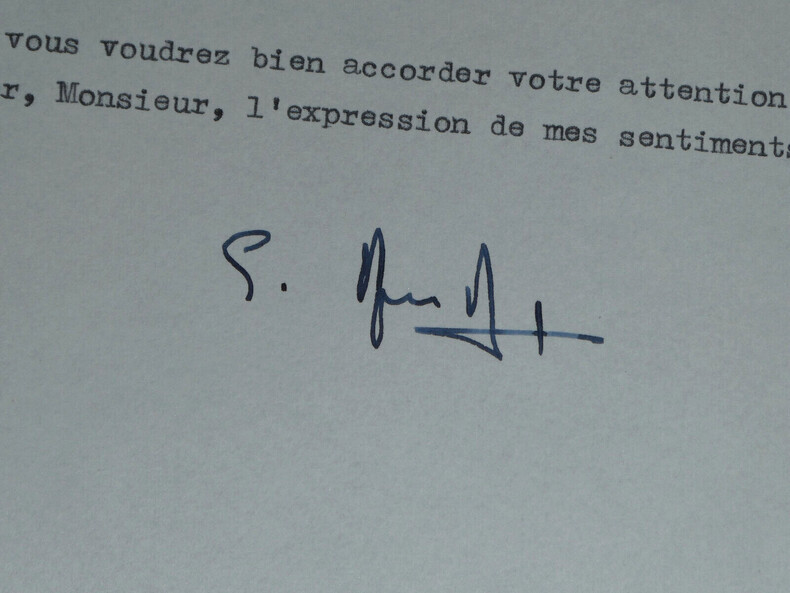 vous voudrez bien accorder votre attention
r, Monsieur, l'expression de mes sentiments